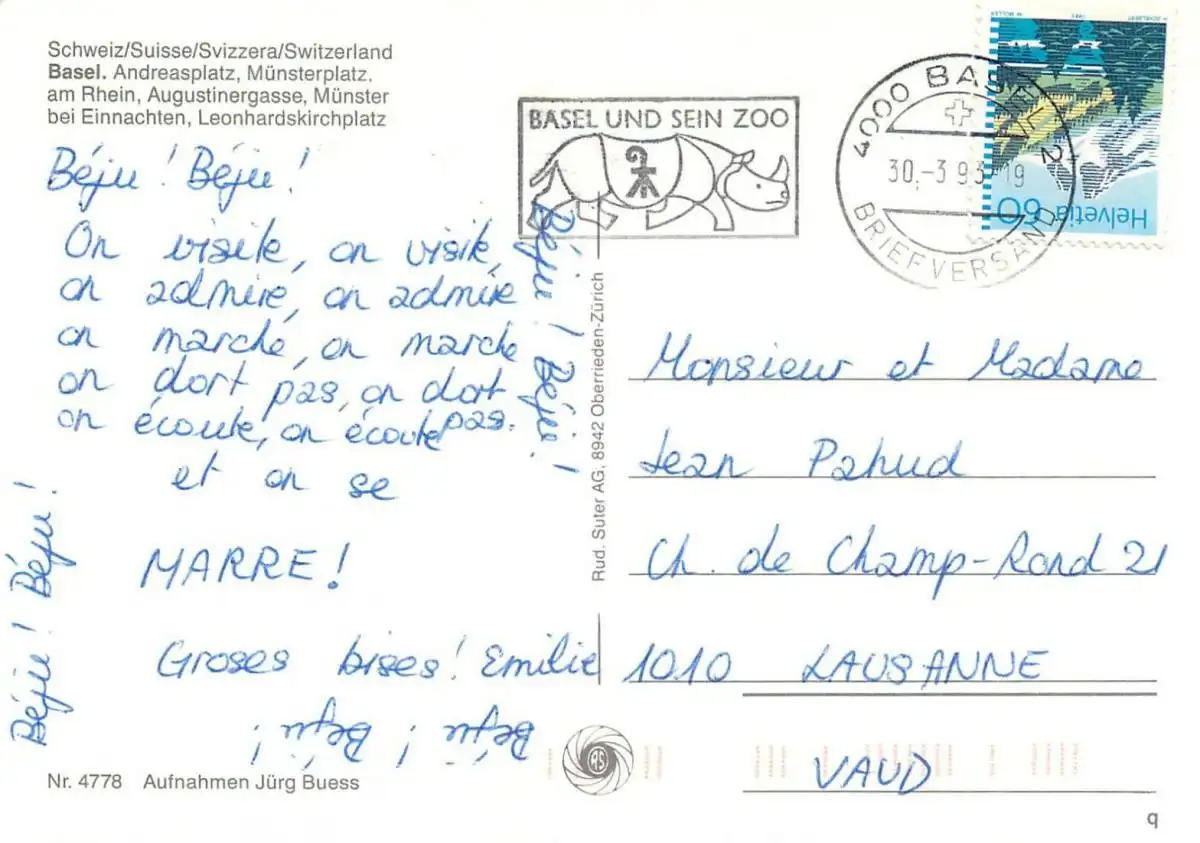 Schweiz/Suisse/Svizzera/Switzerland
Basel. Andreasplatz, Münsterplatz,
am Rhein, Augustinergasse, Münster
bei Einnachten, Leonhardskirchplatz
Béju! Béju!
On visite, on visite,
on admire, on admire
on marche, on marche
on dort pas, on dort
pas.
on écoute, on écoute
et on se
MARRE!
Groses bises! Emilie
Béju! Béju!
Béju! Béju!
Béju! Béju!
Nr. 4778 Aufnahmen Jürg Buess
Rud. Suter AG, 8942 Oberrieden-Zürich
BASEL UND SEIN ZOO
4000 BASEL 2
30.-3 93-19
BRIEFVERSAND
Helvetia 60
Monsieur et Madame
Jean Pahud
Ch. de Champ-Rond 21
1010 LAUSANNE
VAUD
RS
q